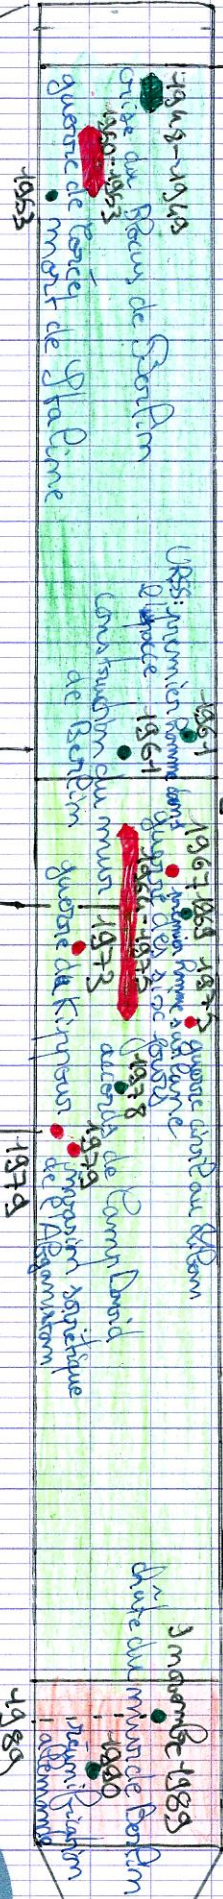 1948-1949
crise du Blocus de Berlin
1950-1953
guerre de Corée
mort de Staline
1953
1961
URSS: premier homme dans
l'espace
1961
construction du mur
de Berlin
1967
guerre des six jours
1969
premier homme sur lune
1975
guerre civil au Liban
1964-1975
1973
guerre de Kippour
1978
accords de Camp David
1979
invasion soviétique
de l'Afganistan
1979
9 novembre 1989
chute du mur de Berlin
1990
réunification
allemande
1989